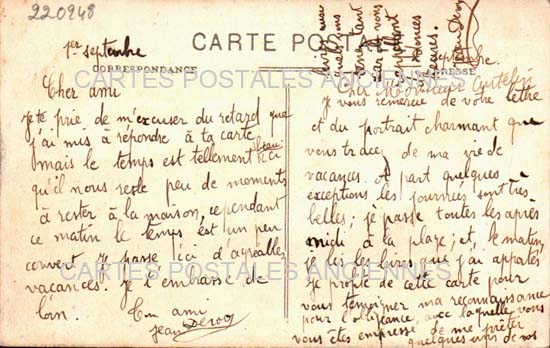 220948
CARTE POSTALE
CORRESPONDANCE
ADRESSE
CARTES POSTALES ANCIENNES
1er septembre
Cher ami
je te prie de m'excuser du retard que
j'ai mis à répondre à ta carte
mais le temps est tellement beau ici
qu'il nous reste peu de moments
à rester à la maison, cependant
ce matin le temps est un peu
couvert. Je passe ici d'agréables
vacances. Je t'embrasse de
loin. Ton ami
Jean
septembre
Cher Monsieur
Je vous remercie de votre lettre
et du portrait charmant que
vous tracez de ma vie de
vacances. A part quelques
exceptions les journées sont très
belles; je passe toutes les après
midi à la plage; et, le matin,
je lis les livres que j'ai apportés
Je profite de cette carte pour
vous témoigner ma reconnaissance
pour l'obligeance avec laquelle vous
vous êtes empressé de me prêter
quelques uns de vos
livres
CARTES POSTALES ANCIENNES